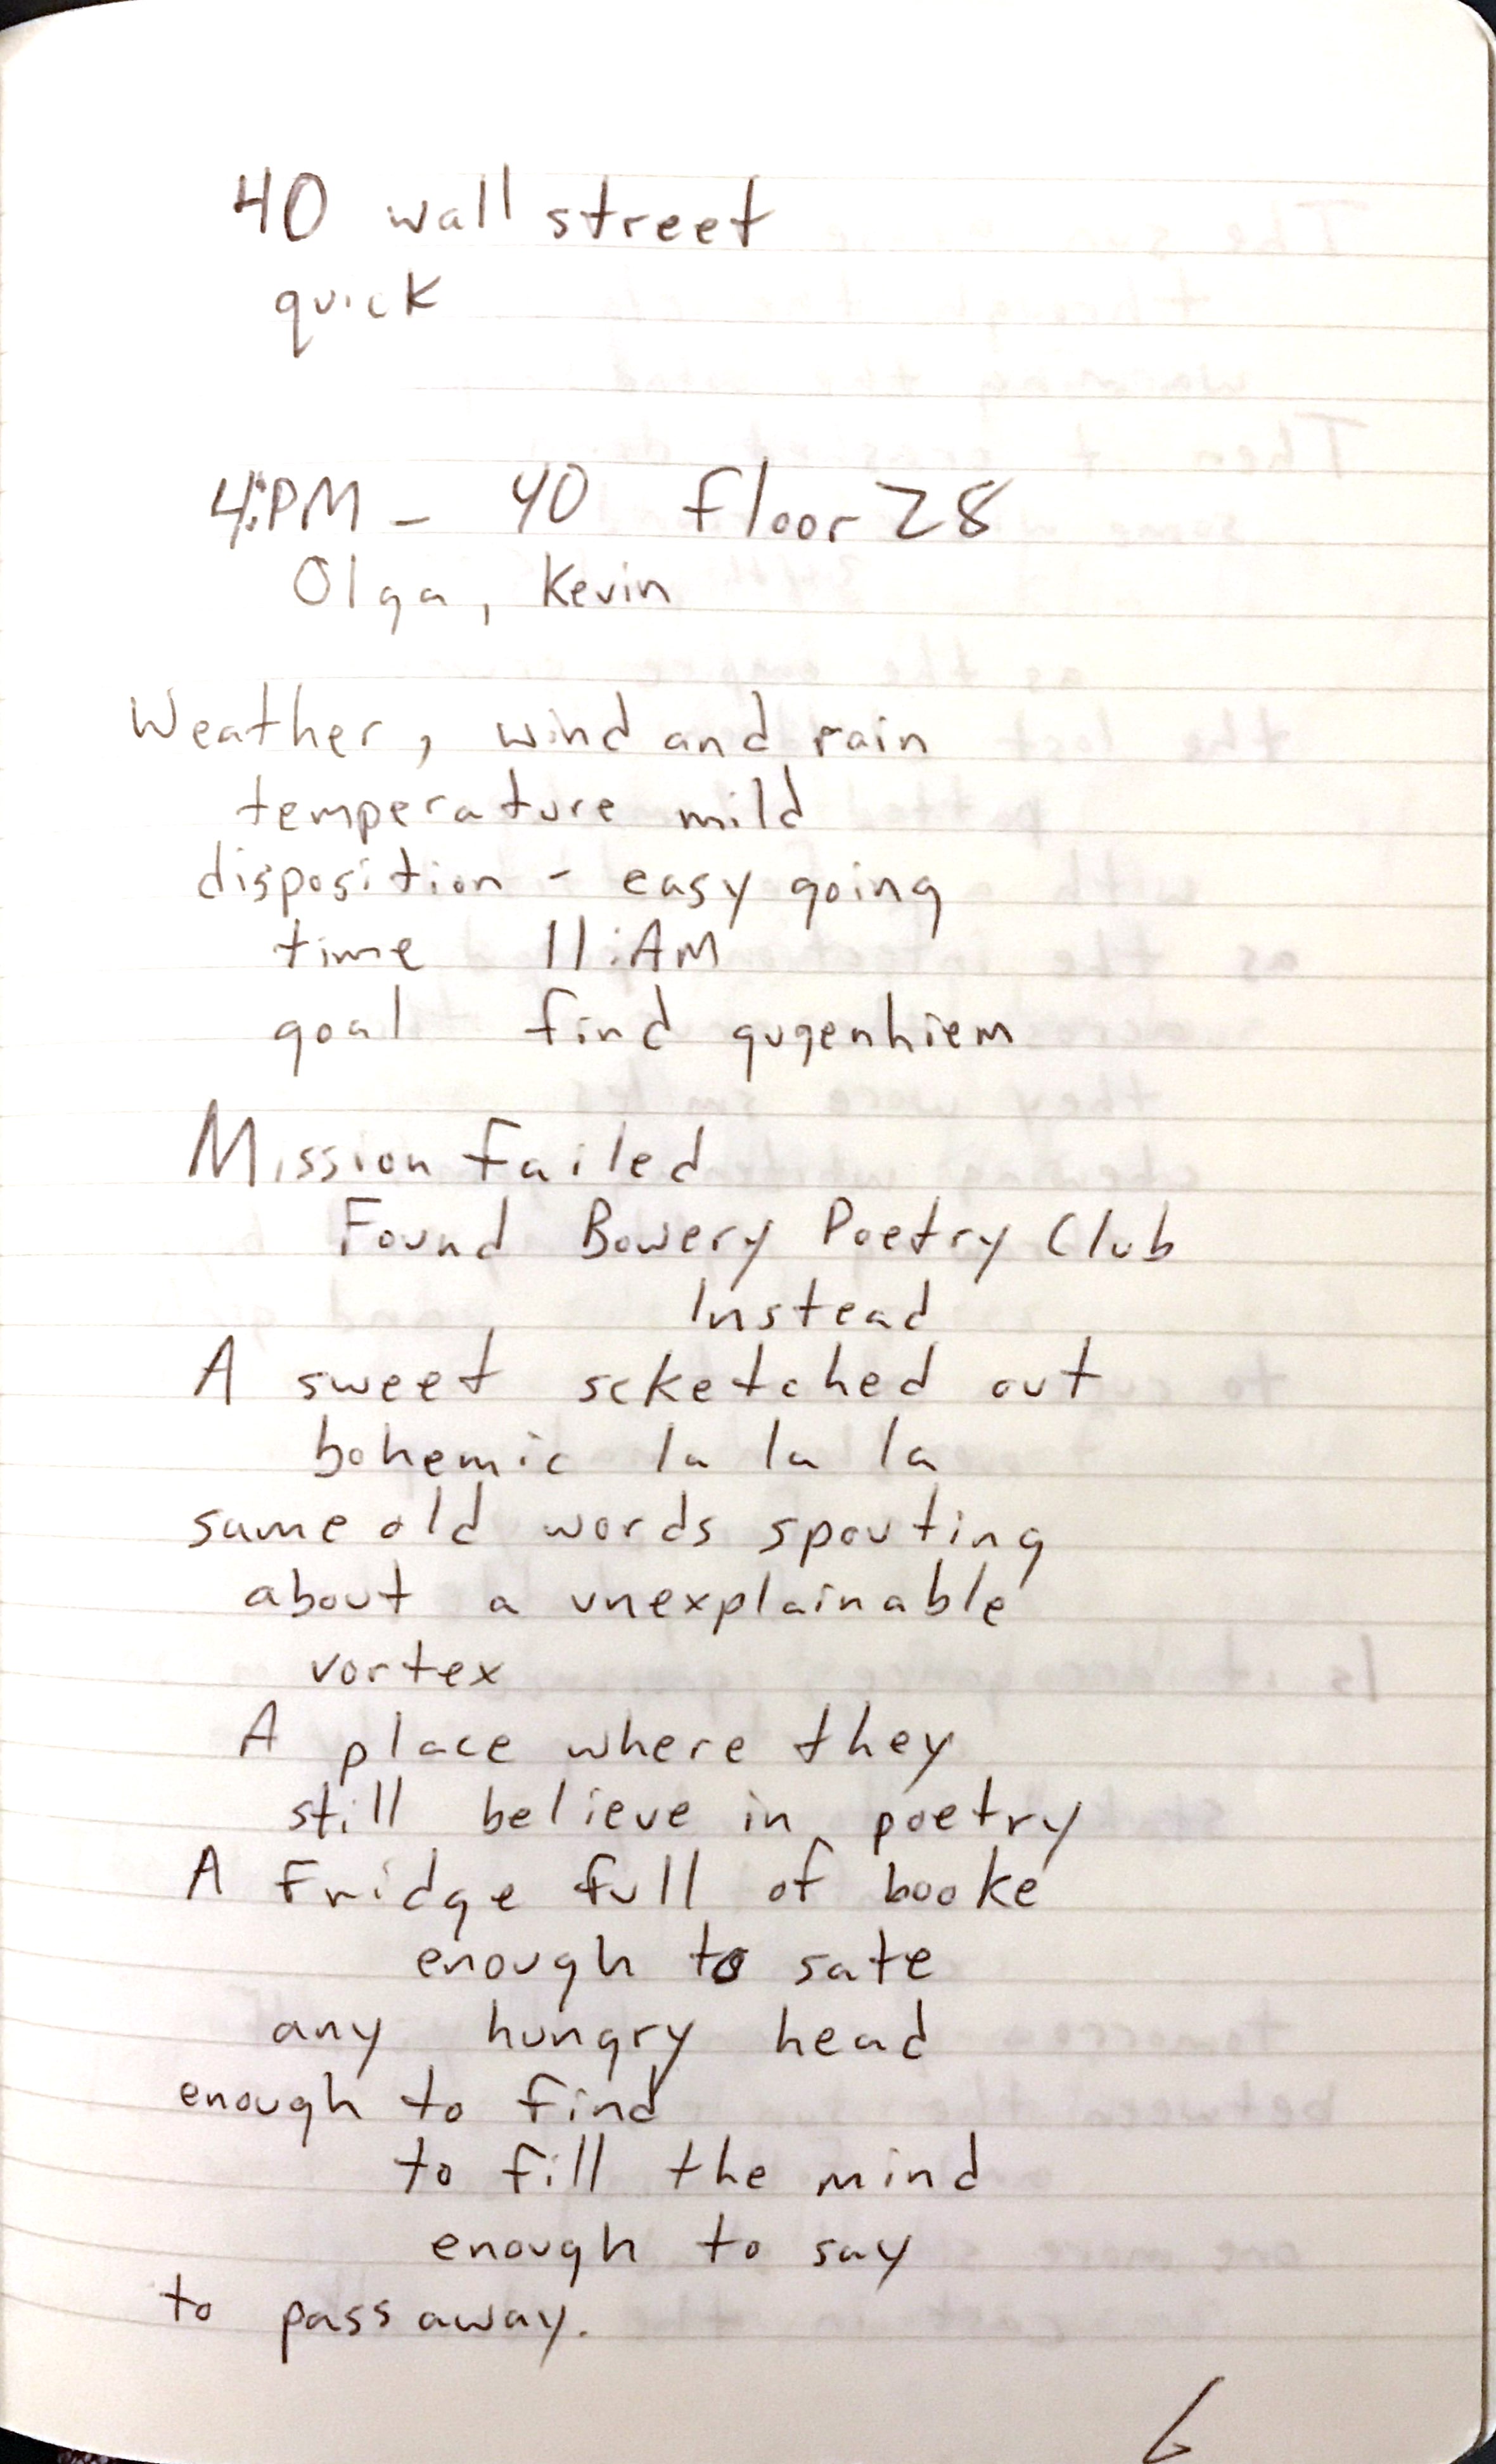 40 wall street
quick
4:PM - 40 floor 28
Olga, Kevin
Weather, wind and rain
temperature mild
disposition - easy going
time 11:AM
goal find gugenhiem
Mission failed
Found Bowery Poetry Club
Instead
A sweet scketched out
bohemic la la la
same old words spouting
about a unexplainable
vortex
A place where they
still believe in poetry
A Fridge full of booke
enough to sate
any hungry head
enough to find
to fill the mind
enough to say
to pass away.